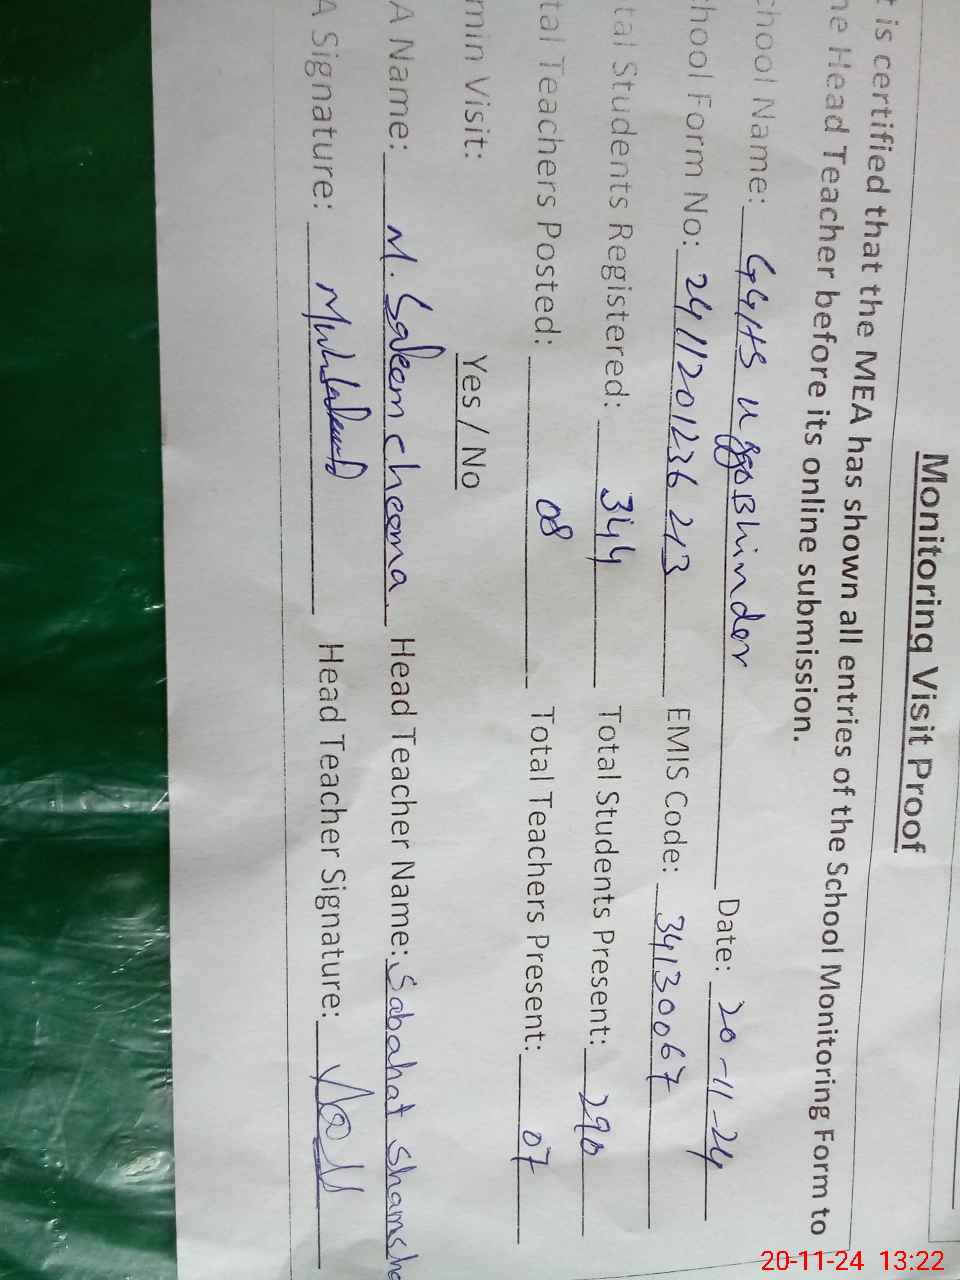 Monitoring Visit Proof
t is certified that the MEA has shown all entries of the School Monitoring Form to
he Head Teacher before its online submission.
chool Name: GGHS uggoBhinder Date: 20-11-24
hool Form No: 2411201236 213 EMIS Code: 34130067
tal Students Registered: 344 Total Students Present: 290
tal Teachers Posted: 08 Total Teachers Present: 07
min Visit: Yes / No
A Name: M. Saleem cheema Head Teacher Name: Sabahat Shamsh
A Signature: Head Teacher Signature:
20-11-24 13:22